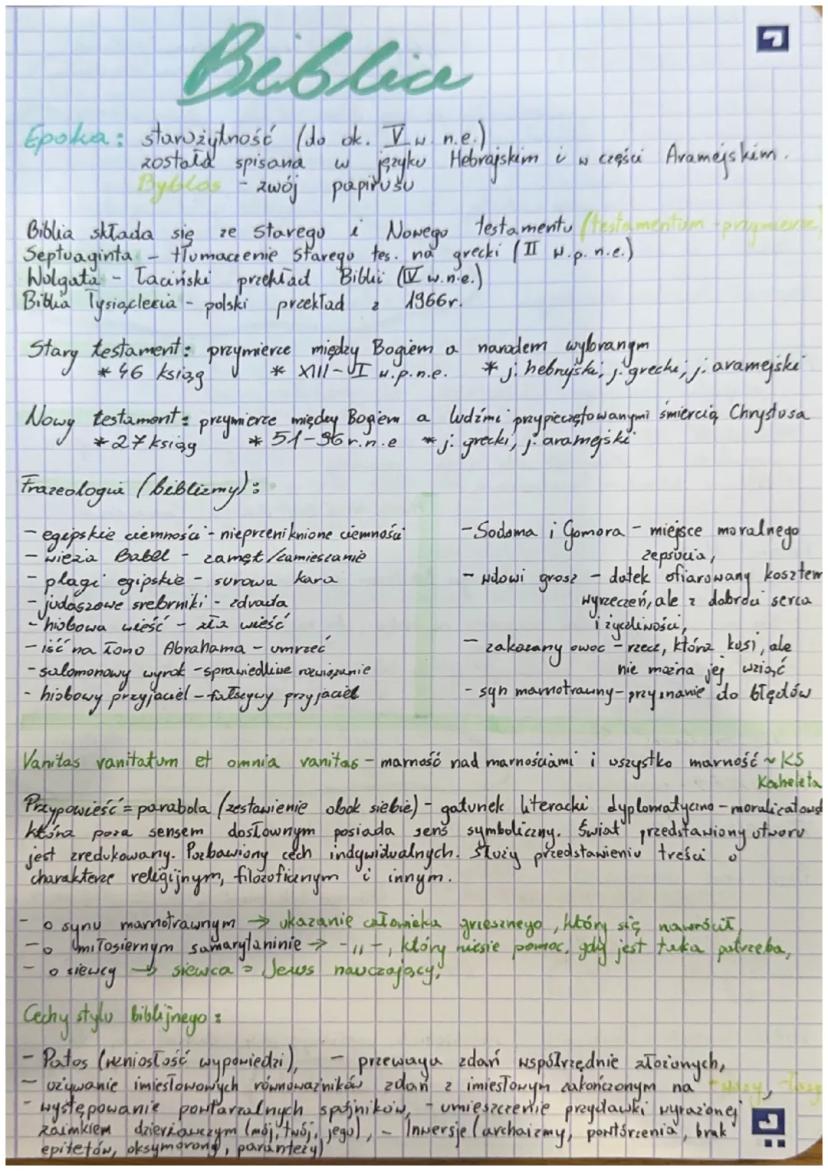 Biblia
Epoka: starożytność (do ok. V w. n.e.)
została spisana w języku Hebrajskim i w części Aramejskim.
Byblos - zwój papirusu
Biblia składa się ze Starego i Nowego testamentu (testamentum - przymierze)
Septuaginta - tłumaczenie Starego tes. na grecki (II w.p. n.e.)
Wolgata - Łaciński przekład Biblii (IV w.n.e.)
Biblia Tysiąclecia - polski przekład z 1966r.
Stary testament: przymierze między Bogiem a narodem wybranym
* 46 ksiąg * XIII-I w.p.n.e. * j. hebrajski, j. grecki, j. aramejski
Nowy testament: przymierze między Bogiem a ludźmi przypieczętowanymi śmiercią Chrystusa
* 27 ksiąg * 51-96 r.n.e * j. grecki, j. aramejski
Frazeologia (biblizmy):
- egipskie ciemności - nieprzeniknione ciemności
- wieża Babel - zamęt/zamieszanie
- plagi egipskie - surowa kara
- judaszowe srebrniki - zdrada
- hiobowa wieść - zła wieść
- iść na łono Abrahama - umrzeć
- salomonowy wyrok - sprawiedliwe rozwiązanie
- hiobowy przyjaciel - fałszywy przyjaciel
- Sodoma i Gomora - miejsce moralnego
zepsucia,
- wdowi grosz - datek ofiarowany kosztem
wyrzeczeń, ale z dobroci serca
i życzliwości,
- zakazany owoc - rzecz, która kusi, ale
nie można jej wziąć
- syn marnotrawny - przyznanie do błędów
Vanitas vanitatum et omnia vanitas - marność nad marnościami i wszystko marność ~ KS
Koheleta
Przypowieść = parabola (zestawienie obok siebie) - gatunek literacki dyplomatyczno - moralizatorski
która poza sensem dosłownym posiada sens symboliczny. Świat przedstawiony utworu
jest zredukowany. Pozbawiony cech indywidualnych. Służy przedstawieniu treści o
charakterze religijnym, filozoficznym i innym.
- o synu marnotrawnym → ukazanie człowieka grzesznego, który się nawrócił,
- o miłosiernym samarytaninie → -,,-, który niesie pomoc, gdy jest taka potrzeba,
- o siewcy → siewca = Jezus nauczający,
Cechy stylu biblijnego:
- Patos (wzniosłość wypowiedzi), - przewaga zdań współrzędnie złożonych,
- używanie imiesłowowych równoważników zdań z imiesłowym zakończonym na -wszy, -łszy
- występowanie powtarzalnych spójników, - umieszczenie przydawki wyrażonej
zaimkiem dzierżawczym (mój, twój, jego), - Inwersje (archaizmy, powtórzenia, brak
epitetów, oksymorony, parantezy)